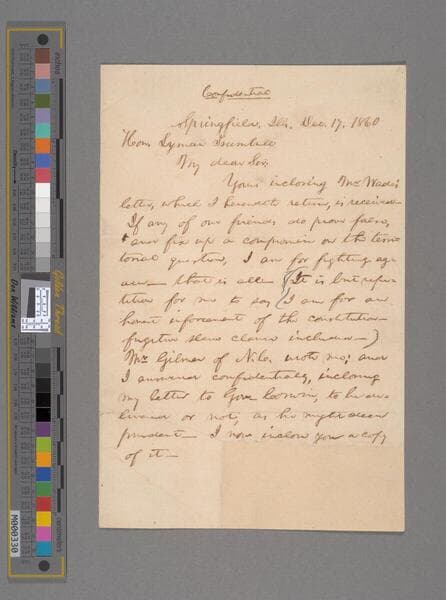 Confidential
Springfield, Ills. Dec. 17. 1860
Hon. Lyman Trumbull
My dear Sir:
Yours inclosing Mr. Wade's
letter, which I herewith return, is received—
If any of our friends do prove false,
and fix up a compromise on the terri-
torial question, I am for fighting aga-
in— that is all— (It is but repe-
tition for me to say I am for an
honest inforcement of the constitution—
fugitive slave clause included—)
Mr. Gilmer of N.C. wrote me; and
I answered confidentially, inclosing
my letter to Gov. Corwin, to be de-
livered or not, as he might deem
prudent— I now inclose you a copy
of it—
inches
centimetres
Golden Thread
M000330